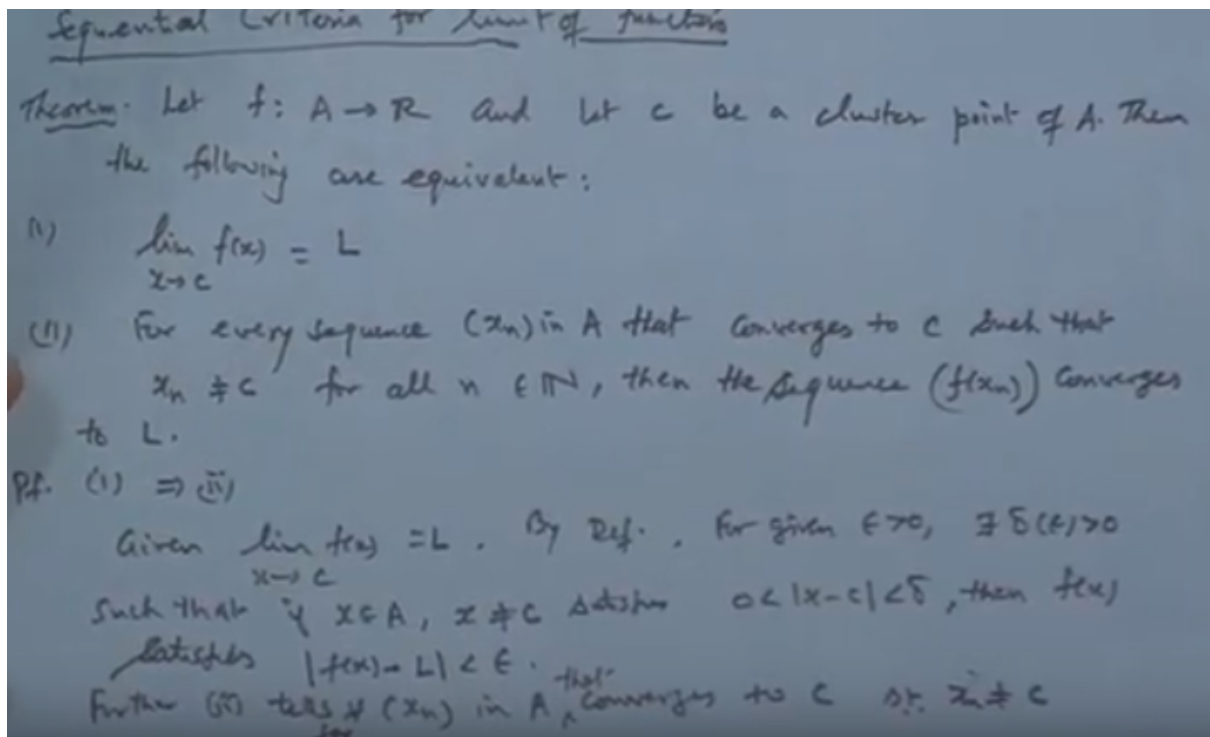 Sequential Criteria for limit of functions
Theorem. Let f: A → R and let c be a cluster point of A. Then
the following are equivalent:
(i) lim f(x) = L
x→c
(ii) For every sequence (xn) in A that converges to c such that
xn ≠ c for all n ∈ IN, then the sequence (f(xn)) converges
to L.
Pf. (i) ⇒ (ii)
Given lim f(x) = L. By Def., For given ε>0, ∃ δ(ε)>0
x→c
such that if x∈A, x≠c satisfies 0<|x-c|<δ, then f(x)
satisfies |f(x)-L|<ε.
Further (ii) tells (xn) in A that converges to c s.t. xn ≠ c
for